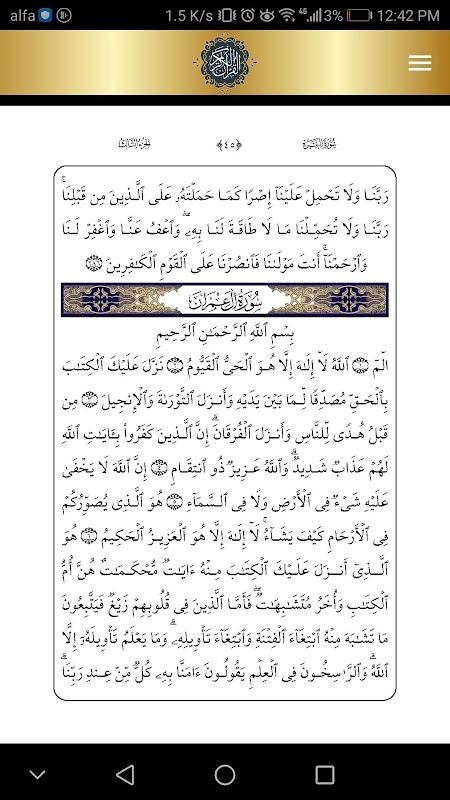 alfa 1.5 K/s 4G 3% 12:42 PM
القرآن الكريم
سُورَةُ البَقَرَةِ ﴿٤٥﴾ الجُزءُ الثَّالِثُ
رَبَّنَا وَلَا تَحْمِلْ عَلَيْنَآ إِصْرًا كَمَا حَمَلْتَهُۥ عَلَى ٱلَّذِينَ مِن قَبْلِنَاۚ
رَبَّنَا وَلَا تُحَمِّلْنَا مَا لَا طَاقَةَ لَنَا بِهِۦۖ وَٱعْفُ عَنَّا وَٱغْفِرْ لَنَا
وَٱرْحَمْنَآۚ أَنتَ مَوْلَىٰنَا فَٱنصُرْنَا عَلَى ٱلْقَوْمِ ٱلْكَٰفِرِينَ ۝٢٨٦
سُورَةُ آلِ عِمْرَان
بِسْمِ ٱللَّهِ ٱلرَّحْمَٰنِ ٱلرَّحِيمِ
الٓمٓ ۝١ ٱللَّهُ لَآ إِلَٰهَ إِلَّا هُوَ ٱلْحَىُّ ٱلْقَيُّومُ ۝٢ نَزَّلَ عَلَيْكَ ٱلْكِتَٰبَ
بِٱلْحَقِّ مُصَدِّقًا لِّمَا بَيْنَ يَدَيْهِ وَأَنزَلَ ٱلتَّوْرَىٰةَ وَٱلْإِنجِيلَ ۝٣ مِن
قَبْلُ هُدًى لِّلنَّاسِ وَأَنزَلَ ٱلْفُرْقَانَۗ إِنَّ ٱلَّذِينَ كَفَرُوا۟ بِـَٔايَٰتِ ٱللَّهِ
لَهُمْ عَذَابٌ شَدِيدٌۗ وَٱللَّهُ عَزِيزٌ ذُو ٱنتِقَامٍ ۝٤ إِنَّ ٱللَّهَ لَا يَخْفَىٰ
عَلَيْهِ شَىْءٌ فِى ٱلْأَرْضِ وَلَا فِى ٱلسَّمَآءِ ۝٥ هُوَ ٱلَّذِى يُصَوِّرُكُمْ
فِى ٱلْأَرْحَامِ كَيْفَ يَشَآءُۚ لَآ إِلَٰهَ إِلَّا هُوَ ٱلْعَزِيزُ ٱلْحَكِيمُ ۝٦ هُوَ
ٱلَّذِىٓ أَنزَلَ عَلَيْكَ ٱلْكِتَٰبَ مِنْهُ ءَايَٰتٌ مُّحْكَمَٰتٌ هُنَّ أُمُّ
ٱلْكِتَٰبِ وَأُخَرُ مُتَشَٰبِهَٰتٌۖ فَأَمَّا ٱلَّذِينَ فِى قُلُوبِهِمْ زَيْغٌ فَيَتَّبِعُونَ
مَا تَشَٰبَهَ مِنْهُ ٱبْتِغَآءَ ٱلْفِتْنَةِ وَٱبْتِغَآءَ تَأْوِيلِهِۦۗ وَمَا يَعْلَمُ تَأْوِيلَهُۥٓ إِلَّا
ٱللَّهُۗ وَٱلرَّٰسِخُونَ فِى ٱلْعِلْمِ يَقُولُونَ ءَامَنَّا بِهِۦ كُلٌّ مِّنْ عِندِ رَبِّنَاۗ